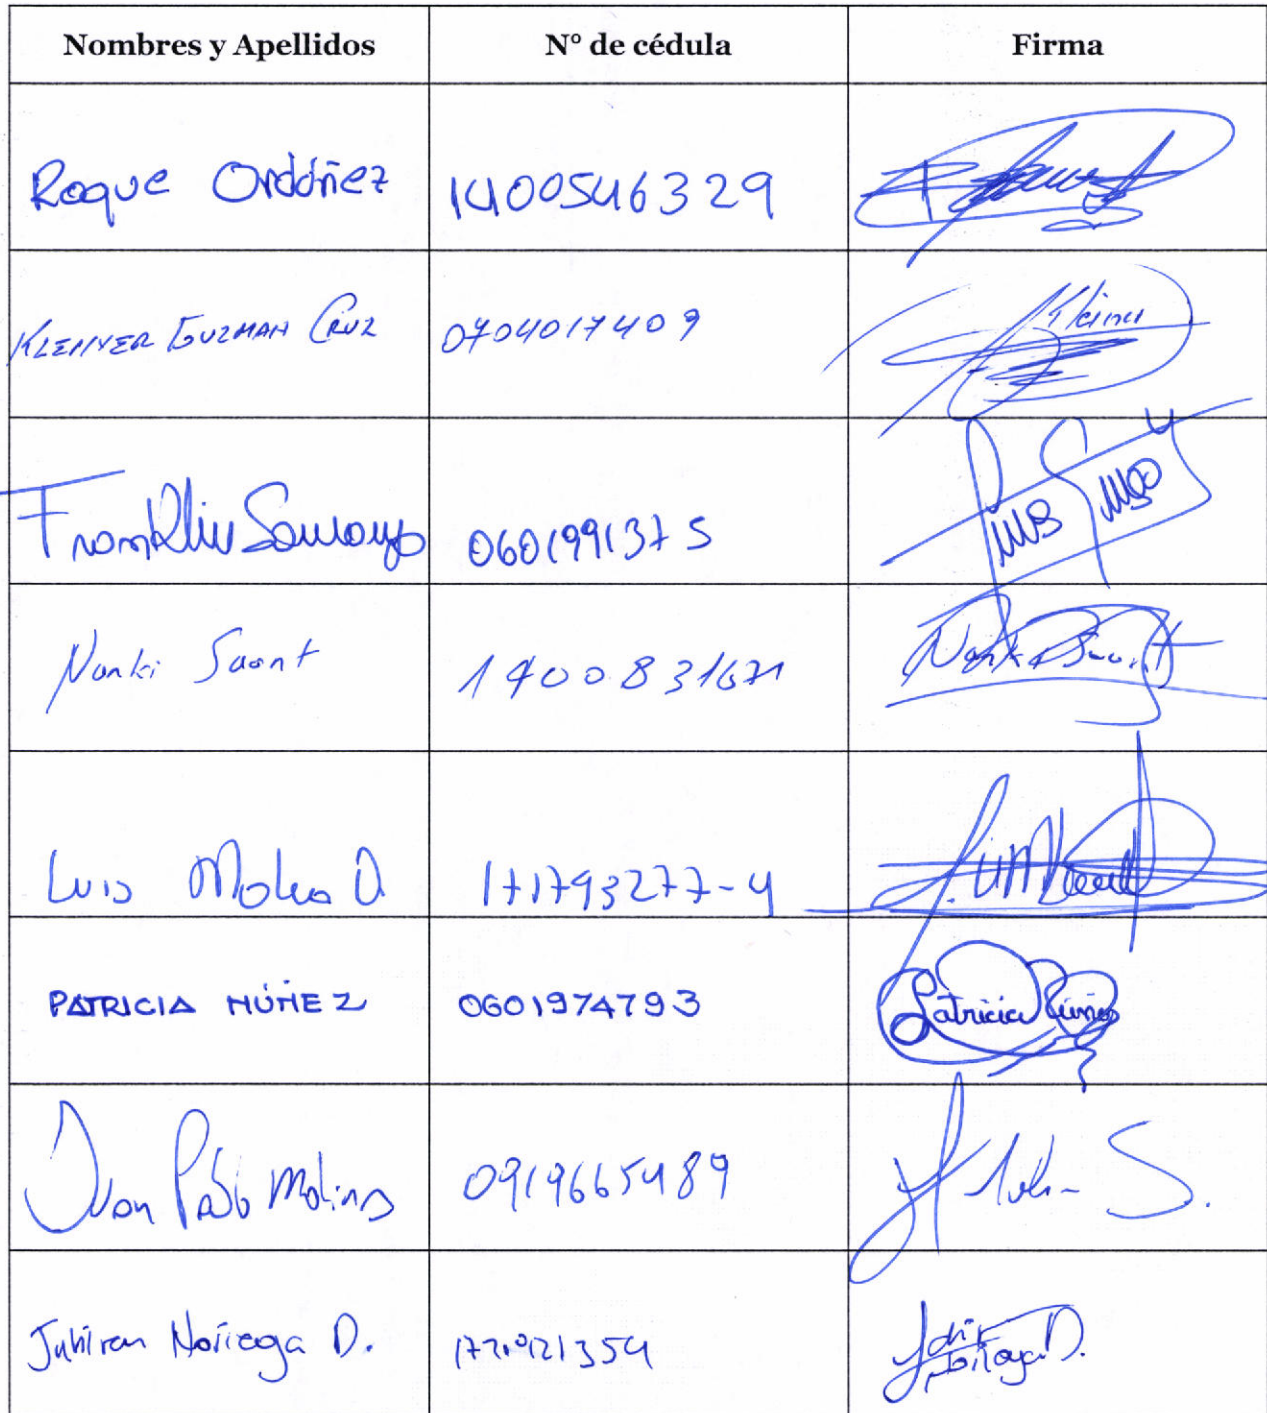 Nombres y Apellidos N° de cédula Firma
Roque Ordóñez 1400546329
KLEINER GUZMAN CRUZ 0704017409 Kleiner
Franklin Samaniego 0601991375
Nanki Saant 1400831671 Nanki Saant
Luis 171793277-4
PATRICIA NÚÑEZ 0601974793 Patricia Núñez
Juan Pablo Molina 0919665489 S.
Noriega D. D.